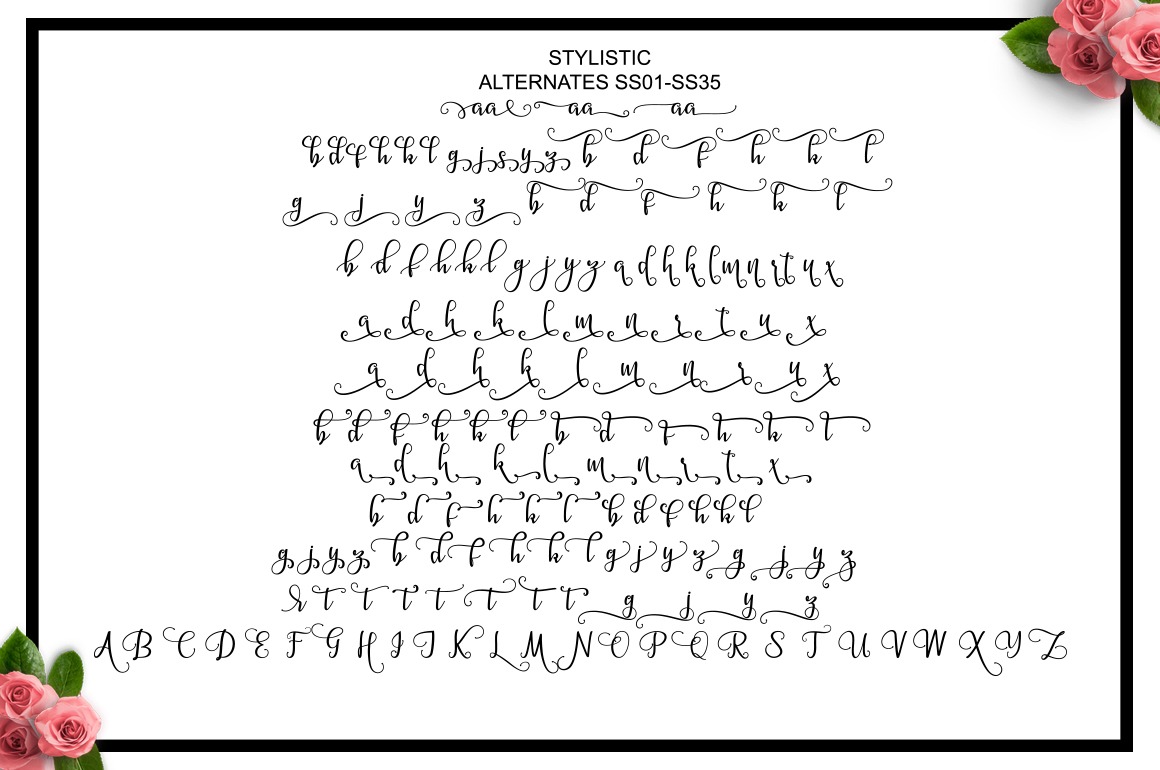 STYLISTIC
ALTERNATES SS01-SS35
aa aa aa
b d f h k l g j s y z b d f h k l
g j y z b d f h k l
b d f h k l g j y z a d h k l m n r t u x
a d h k l m n r t u x
a d h k l m n r u x
b d f h k l b d f h k l
a d h k l m n r t x
b d f h k l b d f h k l
g j y z b d f h k l g j y z g j y z
r t t t t t t t g j y z
A B C D E F G H I J K L M N O P Q R S T U V W X Y Z